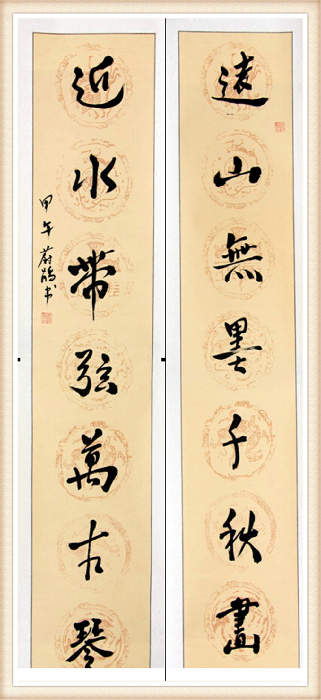 遠山無墨千秋畫
近水帶弦萬古琴
甲午蔚书